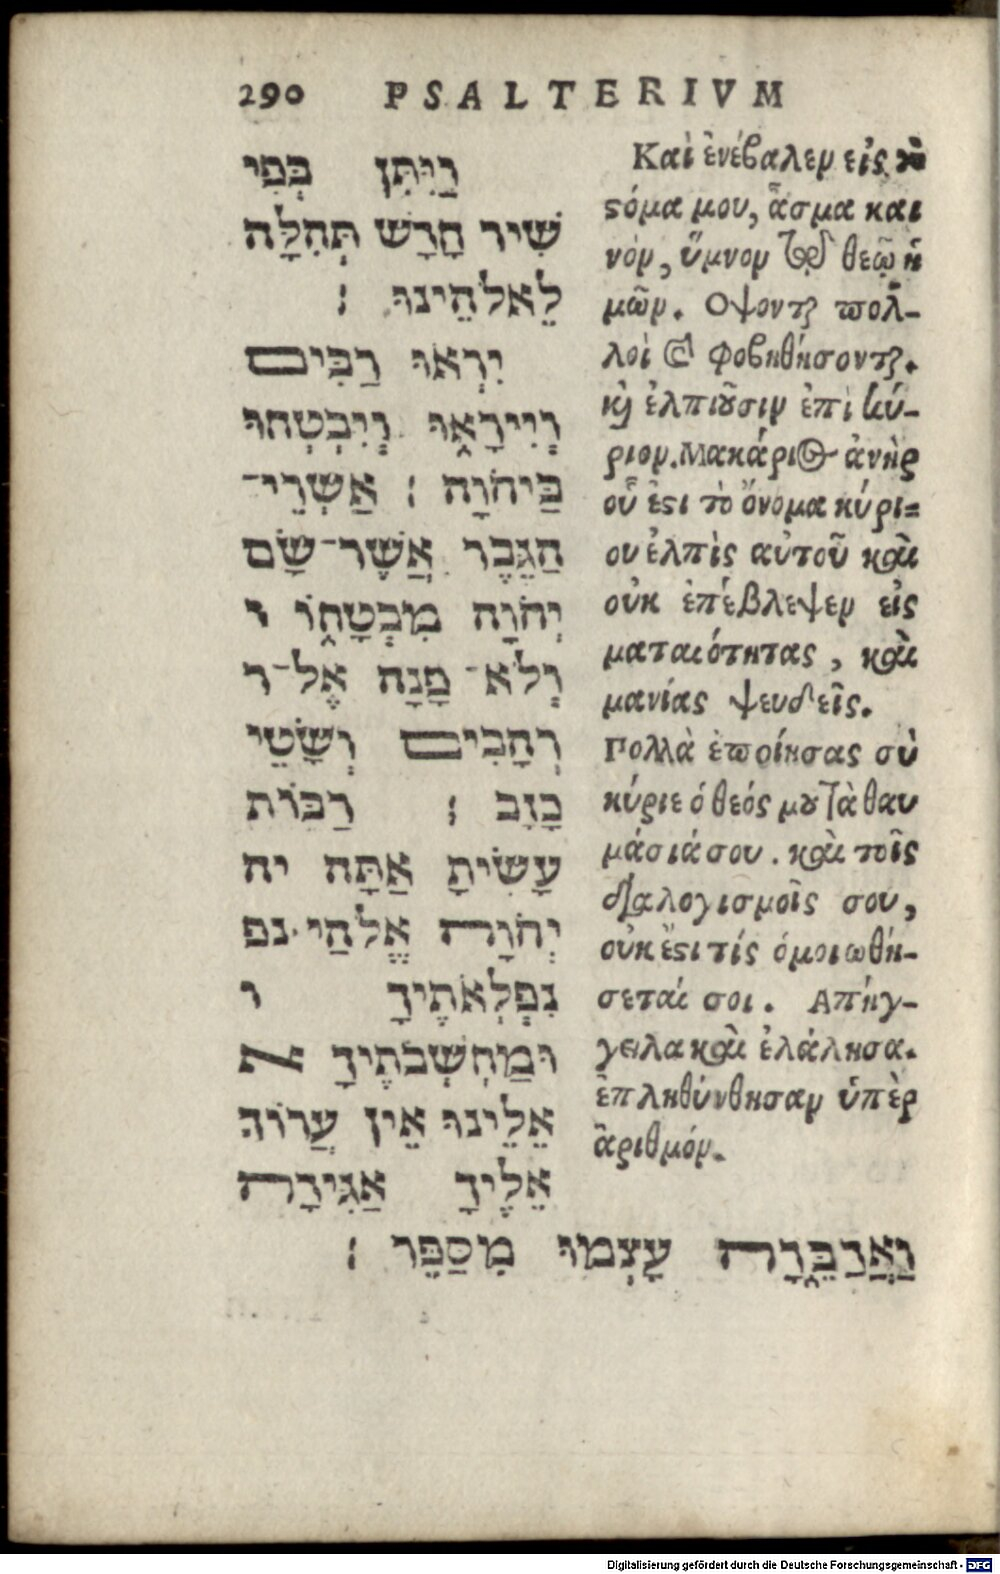 290 PSALTERIVM
וַיִּתֵּן בְּפִי
שִׁיר חָדָשׁ תְּהִלָּה
לֵאלֹהֵינוּ ׃
יִרְאוּ רַבִּים
וְיִירָאוּ וְיִבְטְחוּ
בַּיהֹוָה ׃ אַשְׁרֵי־
הַגֶּבֶר אֲשֶׁר־שָׂם
יְהֹוָה מִבְטָחוֹ ו
וְלֹא־ פָנָה אֶל־ר
רְהָבִים וְשָׂטֵי
כָזָב ׃ רַבּוֹת
עָשִׂיתָ אַתָּה יה
יְהֹוָה אֱלֹהַי נפ
נִפְלְאֹתֶיךָ ו
וּמַחְשְׁבֹתֶיךָ א
אֵלֵינוּ אֵין עֲרוֹךְ
אֵלֶיךָ אַגִּידָה
וַאֲדַבֵּרָה עָצְמוּ מִסַּפֵּר ׃
Καὶ ἐνέβαλεν εἰς τὸ
ϛόμα μου, ἆσμα και
νὸν, ὕμνον τῷ θεῷ ἡ
μῶν. Οψονται πολ-
λοὶ καὶ φοβηθήσονται.
καὶ ἐλπιοῦσιν ἐπὶ κύ-
ριον. Μακάριος ἀνὴρ
οὗ ἐϛι τὸ ὄνομα κύρι=
ου ἐλπὶς αὐτοῦ καὶ
οὐκ ἐπέβλεψεν εἰς
ματαιότητας, καὶ
μανίας ψευδεῖς.
Πολλὰ ἐποίησας σὺ
κύριε ὁ θεός μου τὰ θαυ
μάσιά σου. καὶ τοῖς
διαλογισμοῖς σου,
οὐκ ἔϛι τίς ὁμοιωθή-
σεταί σοι. Απήγ-
γειλα καὶ ἐλάλησα.
ἐπληθύνθησαν ὑπὲρ
ἀριθμόν.
Digitalisierung gefördert durch die Deutsche Forschungsgemeinschaft - DFG